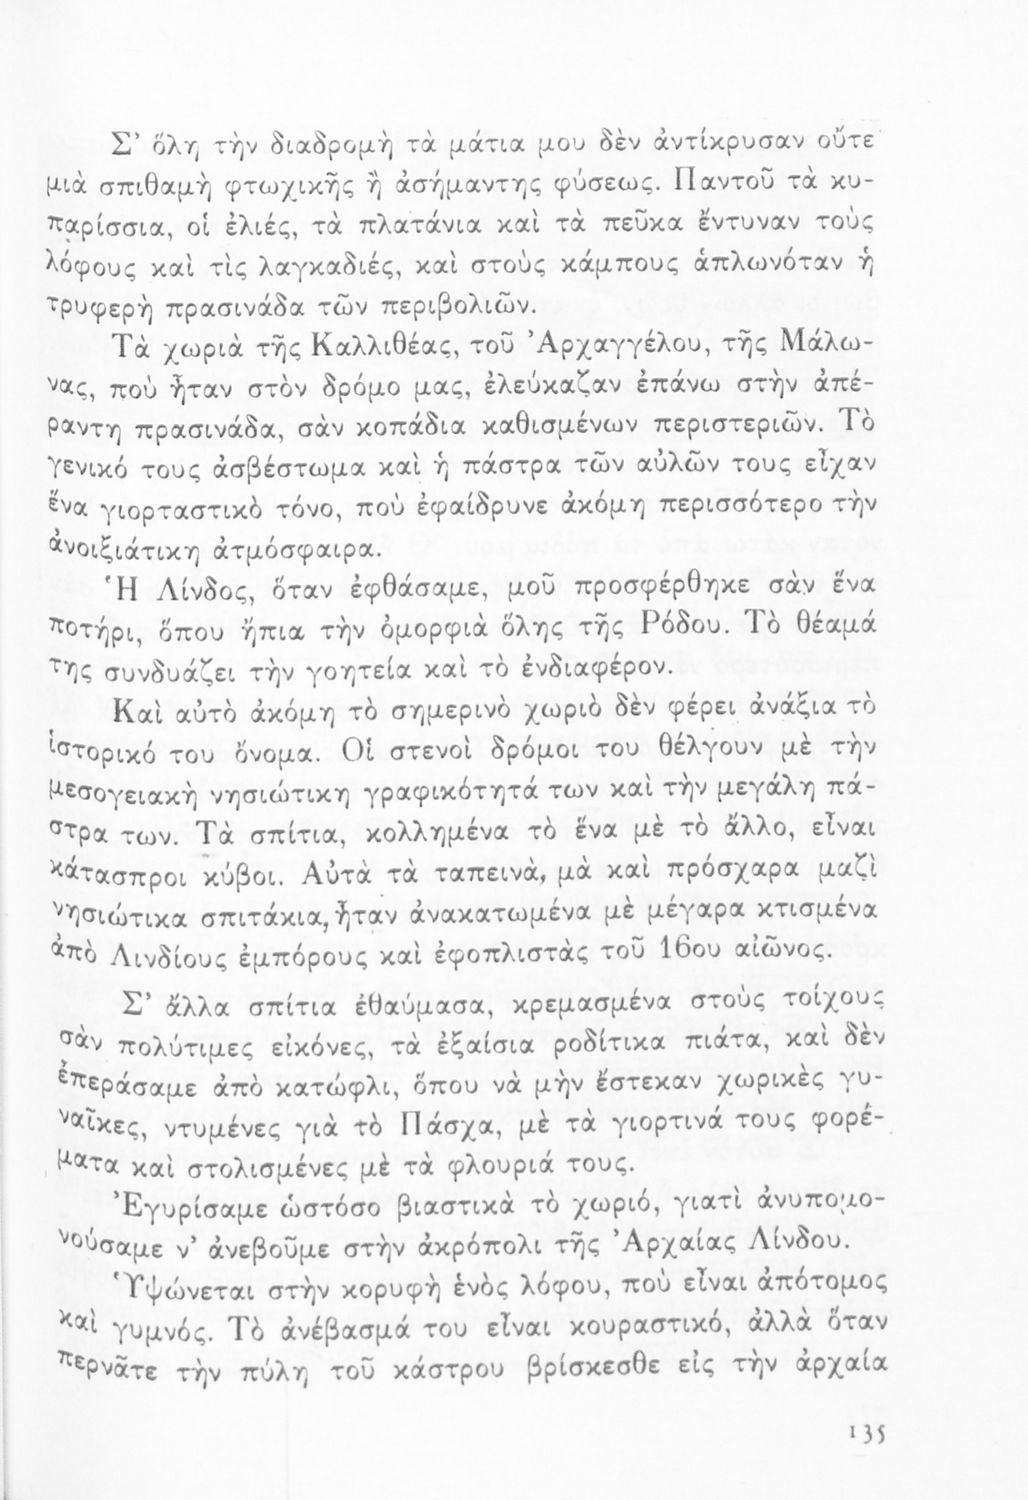 Σ’ ὅλη τὴν διαδρομὴ τὰ μάτια μου δὲν ἀντίκρυσαν οὔτε
μιὰ σπιθαμὴ φτωχικῆς ἢ ἀσήμαντης φύσεως. Παντοῦ τὰ κυ-
παρίσσια, οἱ ἐλιές, τὰ πλατάνια καὶ τὰ πεῦκα ἔντυναν τοὺς
λόφους καὶ τὶς λαγκαδιές, καὶ στοὺς κάμπους ἁπλωνόταν ἡ
τρυφερὴ πρασινάδα τῶν περιβολιῶν.
Τὰ χωριὰ τῆς Καλλιθέας, τοῦ Ἀρχαγγέλου, τῆς Μάλω-
νας, ποὺ ἦταν στὸν δρόμο μας, ἐλεύκαζαν ἐπάνω στὴν ἀπέ-
ραντη πρασινάδα, σὰν κοπάδια καθισμένων περιστεριῶν. Τὸ
γενικό τους ἀσβέστωμα καὶ ἡ πάστρα τῶν αὐλῶν τους εἶχαν
ἕνα γιορταστικὸ τόνο, ποὺ ἐφαίδρυνε ἀκόμη περισσότερο τὴν
ἀνοιξιάτικη ἀτμόσφαιρα.
Ἡ Λίνδος, ὅταν ἐφθάσαμε, μοῦ προσφέρθηκε σὰν ἕνα
ποτήρι, ὅπου ἤπια τὴν ὀμορφιὰ ὅλης τῆς Ρόδου. Τὸ θέαμά
της συνδυάζει τὴν γοητεία καὶ τὸ ἐνδιαφέρον.
Καὶ αὐτὸ ἀκόμη τὸ σημερινὸ χωριὸ δὲν φέρει ἀνάξια τὸ
ἱστορικό του ὄνομα. Οἱ στενοὶ δρόμοι του θέλγουν μὲ τὴν
μεσογειακὴ νησιώτικη γραφικότητά των καὶ τὴν μεγάλη πά-
στρα των. Τὰ σπίτια, κολλημένα τὸ ἕνα μὲ τὸ ἄλλο, εἶναι
κάτασπροι κύβοι. Αὐτὰ τὰ ταπεινὰ, μὰ καὶ πρόσχαρα μαζὶ
νησιώτικα σπιτάκια, ἦταν ἀνακατωμένα μὲ μέγαρα κτισμένα
ἀπὸ Λινδίους ἐμπόρους καὶ ἐφοπλιστὰς τοῦ 16ου αἰῶνος.
Σ’ ἄλλα σπίτια ἐθαύμασα, κρεμασμένα στοὺς τοίχους
σὰν πολύτιμες εἰκόνες, τὰ ἐξαίσια ροδίτικα πιάτα, καὶ δὲν
ἐπεράσαμε ἀπὸ κατώφλι, ὅπου νὰ μὴν ἔστεκαν χωρικὲς γυ-
ναῖκες, ντυμένες γιὰ τὸ Πάσχα, μὲ τὰ γιορτινά τους φορέ-
ματα καὶ στολισμένες μὲ τὰ φλουριά τους.
Ἐγυρίσαμε ὡστόσο βιαστικὰ τὸ χωριό, γιατὶ ἀνυπομο-
νούσαμε ν’ ἀνεβοῦμε στὴν ἀκρόπολι τῆς Ἀρχαίας Λίνδου.
Ὑψώνεται στὴν κορυφὴ ἑνὸς λόφου, ποὺ εἶναι ἀπότομος
καὶ γυμνός. Τὸ ἀνέβασμά του εἶναι κουραστικό, ἀλλὰ ὅταν
περνᾶτε τὴν πύλη τοῦ κάστρου βρίσκεσθε εἰς τὴν ἀρχαία
135